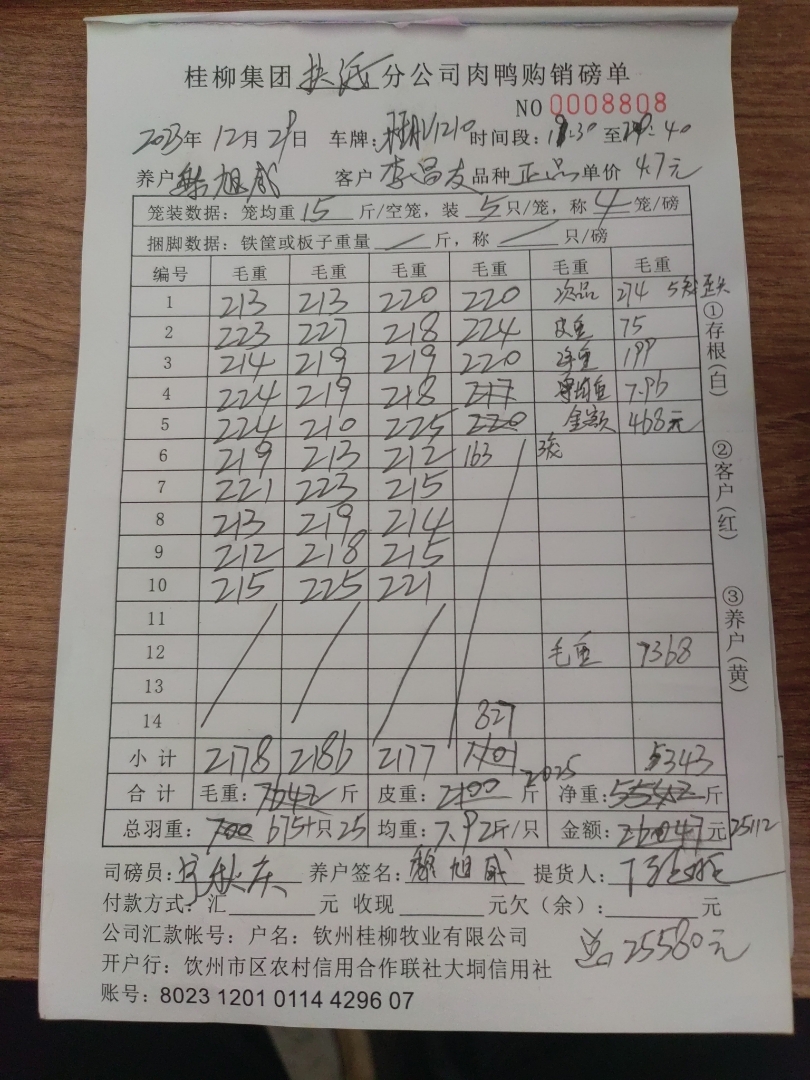 桂柳集团 扶绥 分公司肉鸭购销磅单
NO 0008808
2023年 12月 29日 车牌: 1210 时间段: 18:30 至 :40
养户 黎旭威 客户 李昌友 品种 正品 单价 4.7元
笼装数据: 笼均重 15 斤/空笼, 装 5 只/笼, 称 4 笼/磅
捆脚数据: 铁筐或板子重量 / 斤, 称 / 只/磅
编号 毛重 毛重 毛重 毛重 毛重 毛重
1 213 213 220 220 次品 274 5笼
2 223 227 218 224 皮重 75
3 214 219 219 220 净重 199
4 224 219 218 217 均重 7.96
5 224 210 225 220 金额 468元
6 219 213 212 163 3笼
7 221 223 215
8 213 219 214
9 212 218 215
10 215 225 221
11
12 毛重 7368
13
14 827
小计 2178 2186 2177 5343
合计 毛重: 7642 斤 皮重: 2100 斤 2025 净重: 斤
总羽重: 700 675+只25 均重: 7.92斤/只 金额: 26047元 25112
司磅员: 秋庆 养户签名: 黎旭威 提货人:
付款方式: 汇 元 收现 元欠(余): 元
公司汇款帐号: 户名: 钦州桂柳牧业有限公司
总 25580元
开户行: 钦州市区农村信用合作联社大垌信用社
账号: 8023 1201 0114 4296 07
①存根(白)
②客户(红)
③养户(黄)